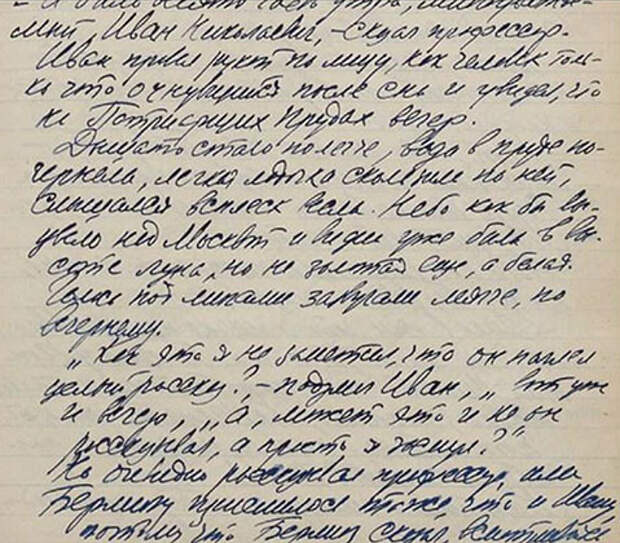 – И было около десяти часов утра, многоуважае-
мый Иван Николаевич, – сказал профессор.
Иван провел рукой по лицу, как человек толь-
ко что очнувшийся после сна и увидел, что
на Патриарших Прудах вечер.
Дышать стало полегче, вода в пруде по-
чернела, легкая лодочка скользила по ней,
слышался всплеск весла. Небо как бы вы-
цвело над Москвой и видна уже была в вы-
соте луна, но не золотая еще, а белая.
Голоса под липами звучали мягче, по
вечернему.
„Как это я не заметил, что он наплел
целый рассказ?, – подумал Иван, „ вот уже
и вечер, „ а, может это и не он
рассказывал, а просто я заснул?"
Но очевидно рассказывал профессор, или
Берлиозу приснилось тоже, что и Ивану,
потому что Берлиоз сказал,